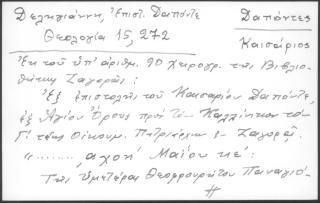 Δεληγιάννη, Ἐπιστ. Δαπόντε
Θεολογία 15, 272
Δαπόντες
Καισάριος
Ἐκ τοῦ ὑπ' ἀριθμ. 90 χειρογρ. τῆς Βιβλιο-
θήκης Ζαγορᾶς:
Ἐξ ἐπιστολῆς τοῦ Καισαρίου Δαπόντε,
ἐξ Ἁγίου Ὄρους πρὸς τὸν Καλλίνικον τὸν
Γ΄ τέως Οἰκουμ. Πατριάρχην ἐν Ζαγορᾷ.
«........, αχοη΄ Μαΐου κε΄:
Τῆς Ὑμετέρας Θεοφρουρήτου Παναγιό-